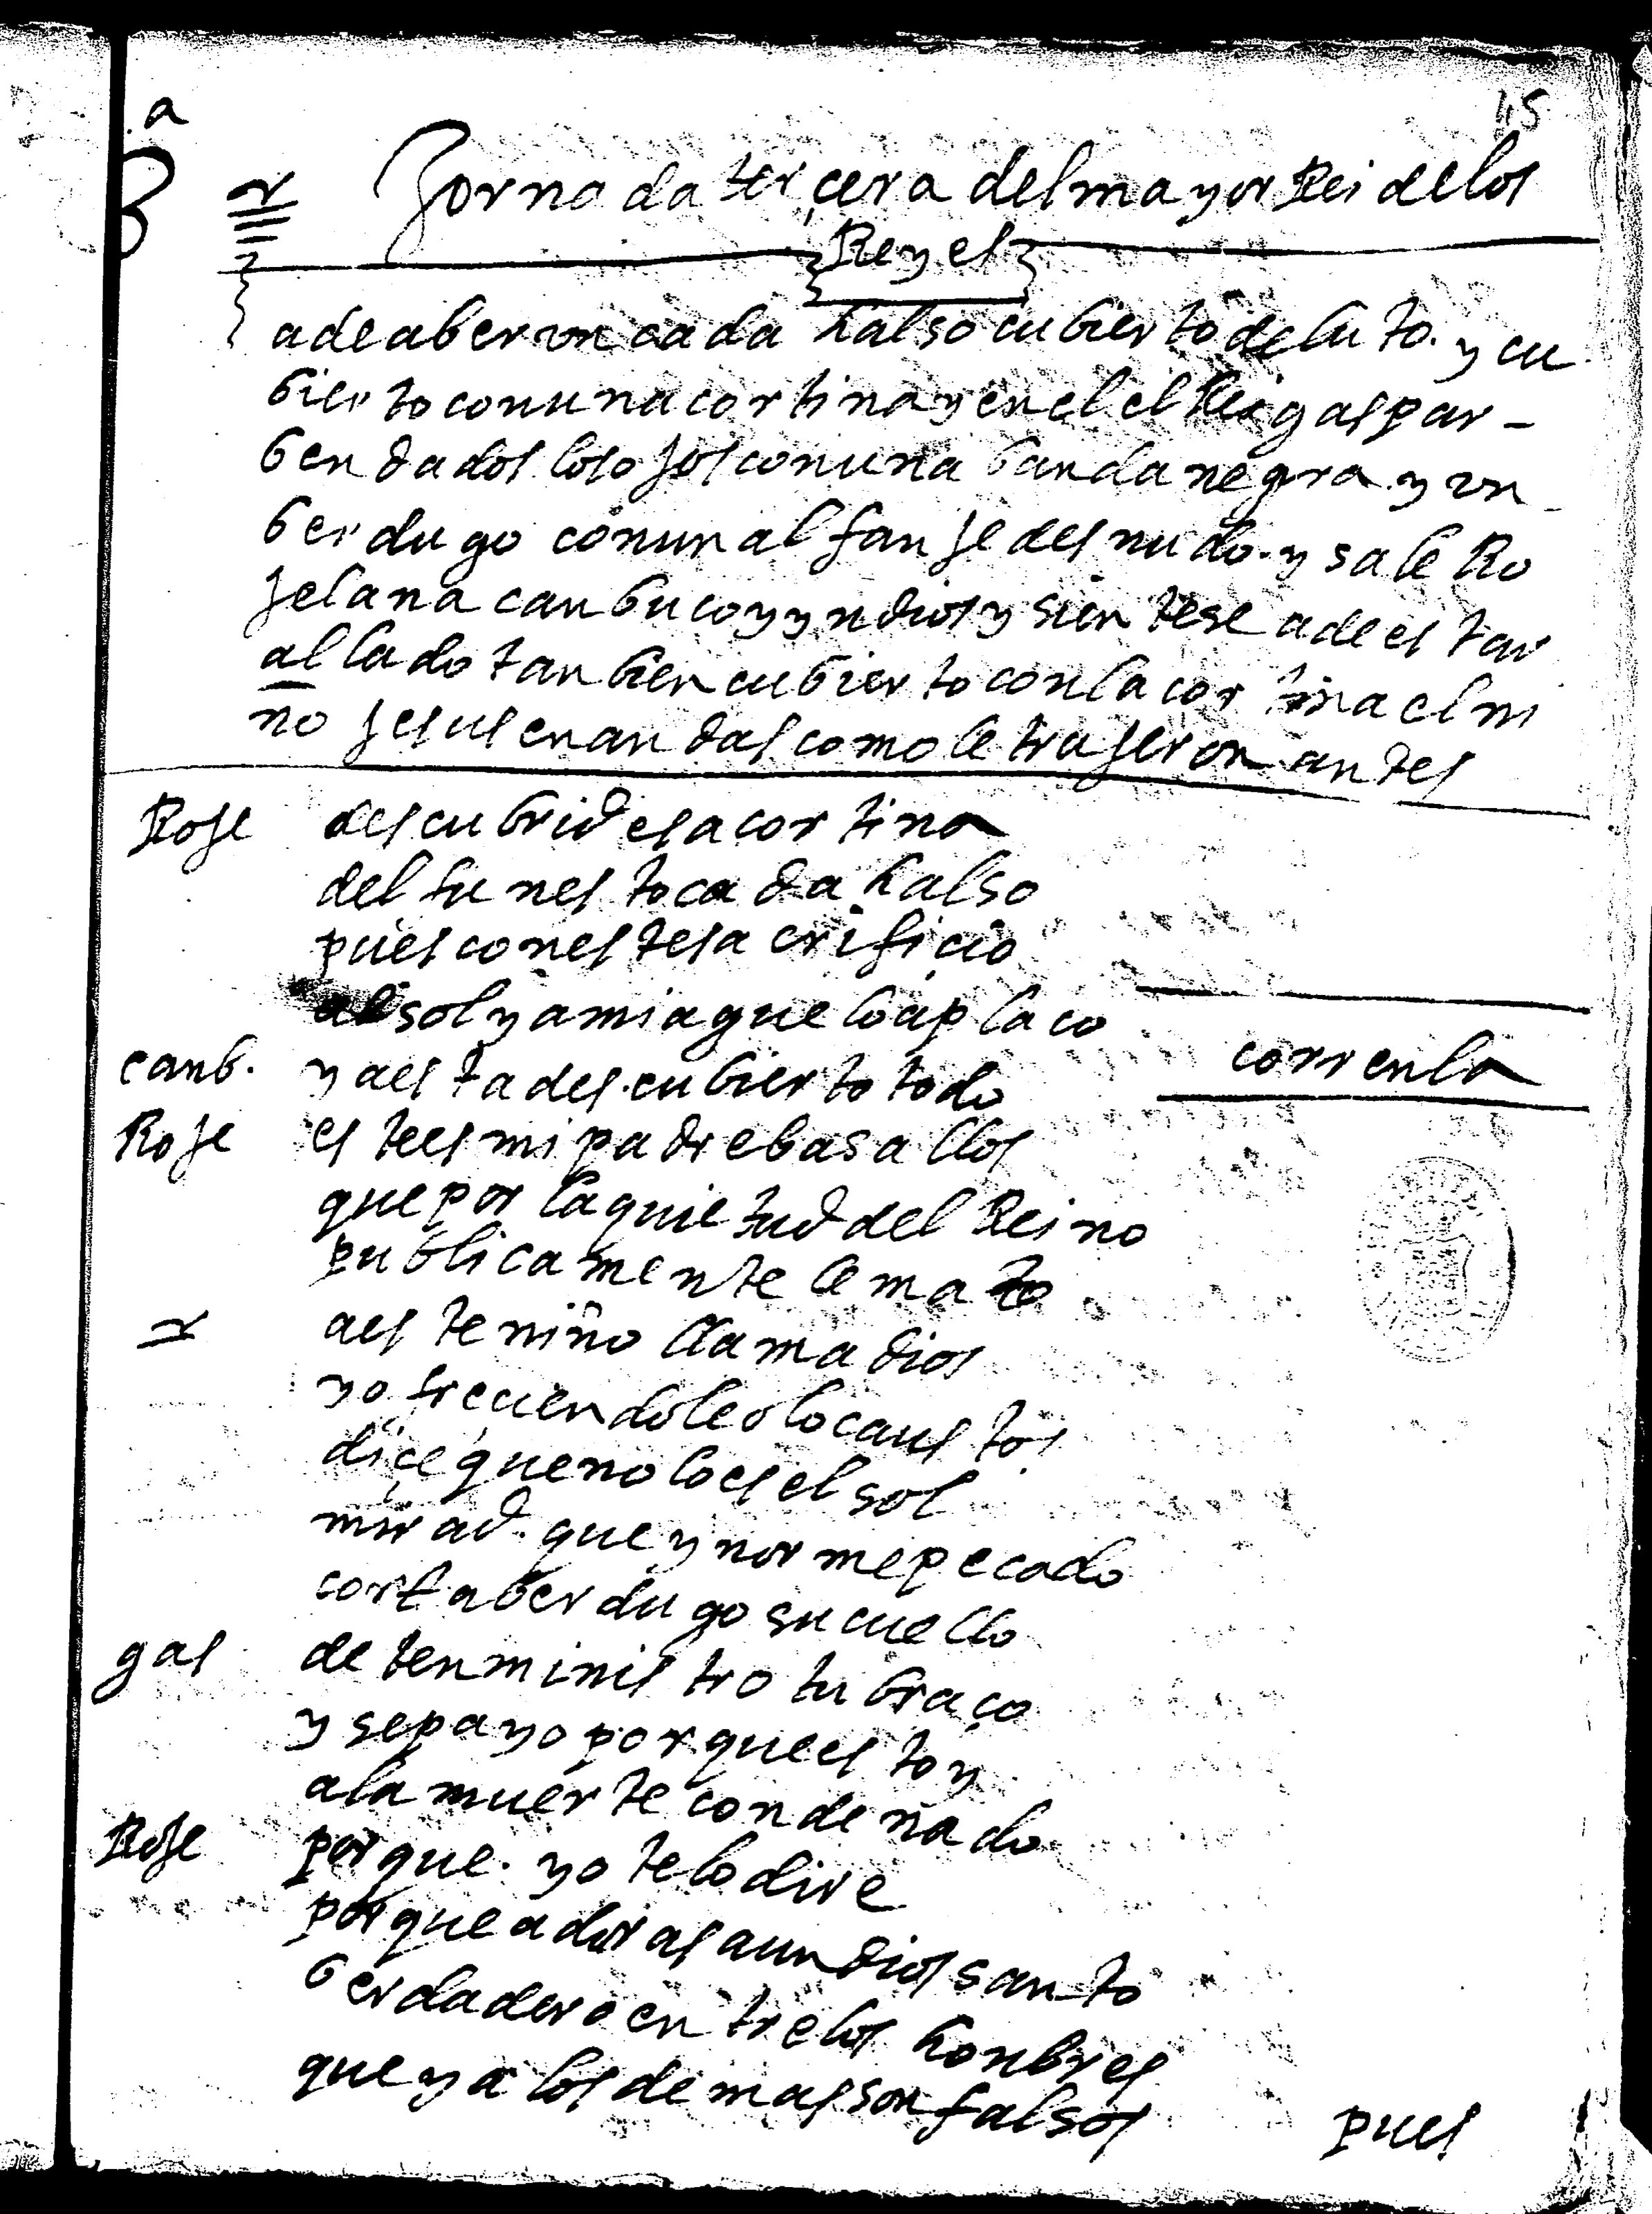 45
3.a
Jornada tercera del mayor Rei de los
Reyes
a de aber vn cadahalso cubierto de luto. y cu
bierto con una cortina y en el el Rei gaspar -
bendados los ojos con una banda negra y vn
berdugo con un alfanje desnudo. y sale Ro
jelana canbuco y yndios y sientese a de estar
al lado tanbien cubierto con la cortina el ni
no jesus en andas como le trajeron antes
Roje descubrid esa cortina
del funesto cadahalso
pues con este sacrificio
al sol y a mi aguelo aplaco
canb. ya esta descubierto todo
correnla
Roje este es mi padre basallos
que por la quietud del Reino
publicamente le mato
a este niño llama dios
y ofreciendole olocaustos
diçe que no lo es el sol
mirad que ynorme pecado
corta berdugo su cuello
gas deten ministro tu braço
y sepa yo porque estoy
a la muerte condenado
Roje porque. yo te lo dire
porque adoras a un dios santo
berdadero entre los honbres
que ya los demas son falsos
pues